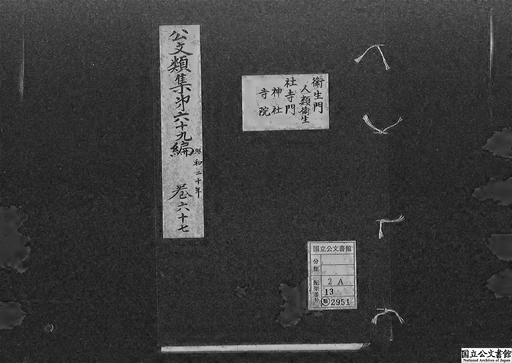 公文類集第六十九編
昭和二十年
巻六十七
衛生門
人類衛生
社寺門
神社
寺院
国立公文書館
分類
配架番号
2 A
13
2951
国立公文書館
National Archives of Japan